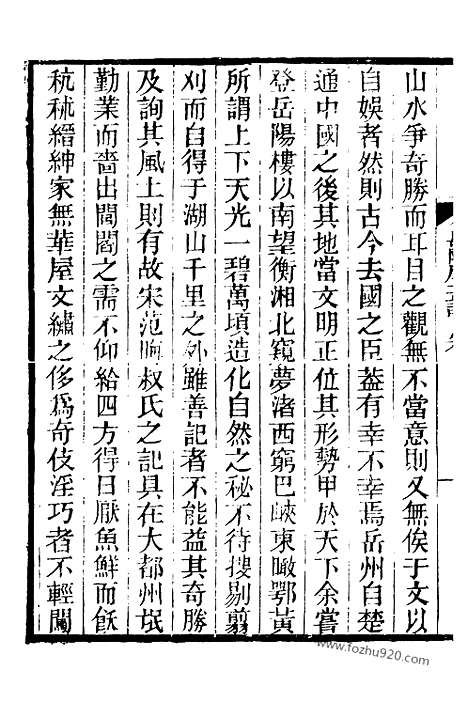 山水爭奇勝而耳目之觀無不當意則又無俟于文以
自娛者然則古今去國之臣葢有幸不幸焉岳州自楚
通中國之後其地當文明正位其形勢甲於天下余嘗
登岳陽樓以南望衡湘北窺夢渚西窮巴峽東瞰鄂黃
所謂上下天光一碧萬頃造化自然之秘不待搜剔剪
刈而自得于湖山千里之外雖善記者不能益其奇勝
及詢其風土則有故宋范晦叔氏之記具在大都州氓
勤業而嗇出閭閻之需不仰給四方得日厭魚鮮而飫
秔秫縉紳家無華屋文繡之侈爲奇伎淫巧者不輕閒
www.fozhu920.com